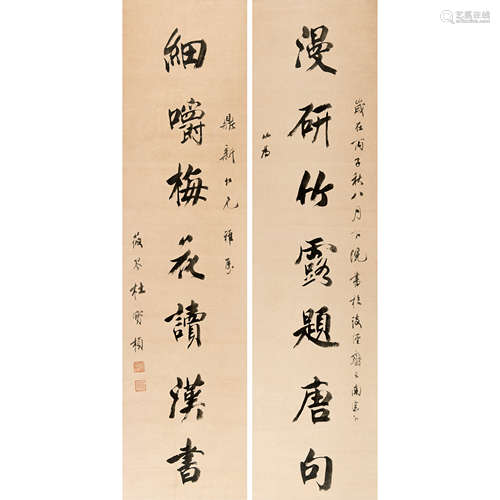 歲在丙子秋八月下浣書於
漫研竹露題唐句
以為
鼎新仁兄雅屬
細嚼梅花讀漢書
筱谷杜寶楨